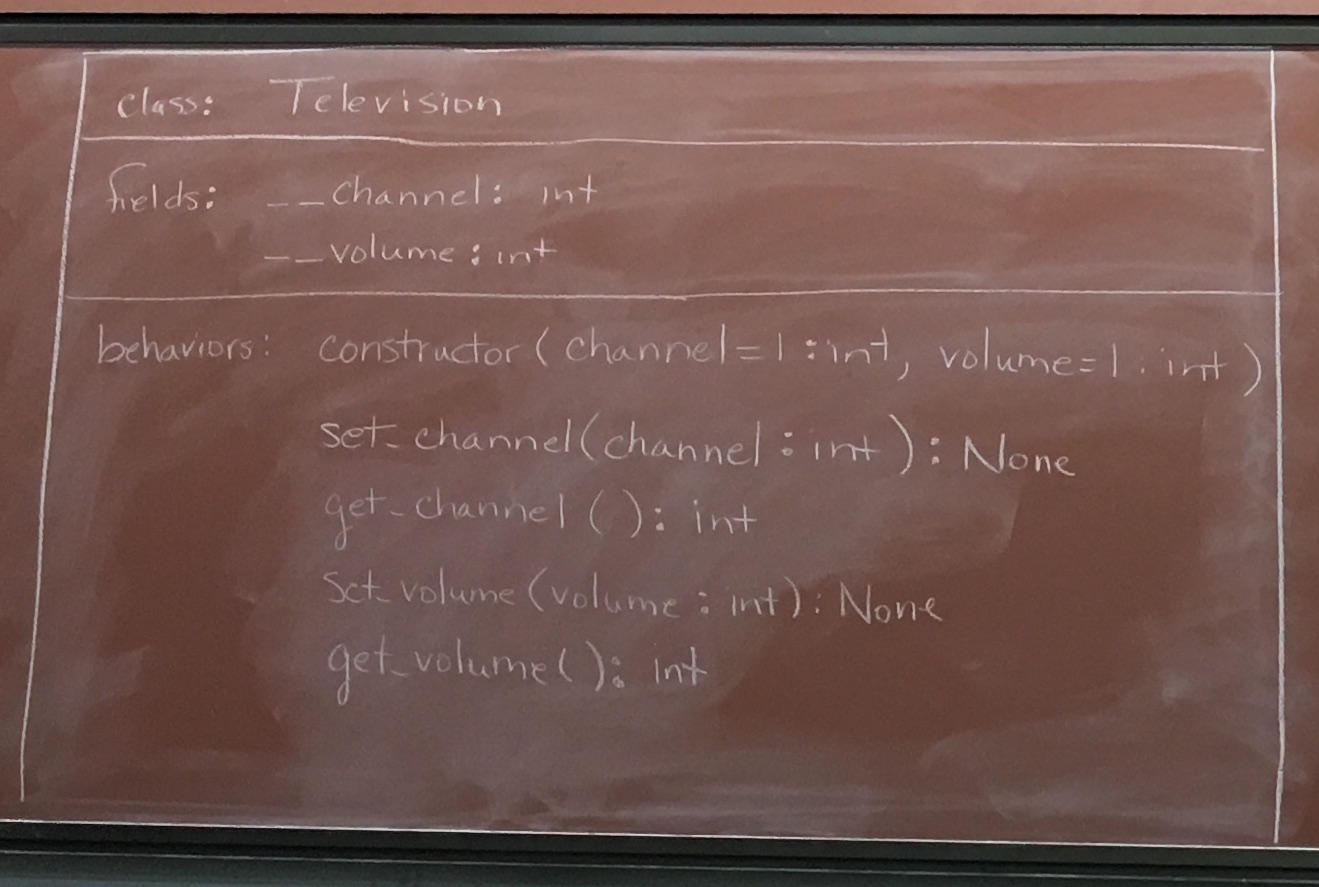 class: Television
fields: __channel: int
__volume: int
behaviors: constructor(channel=1:int, volume=1:int)
set_channel(channel:int):None
get_channel():int
set_volume(volume:int):None
get_volume():int